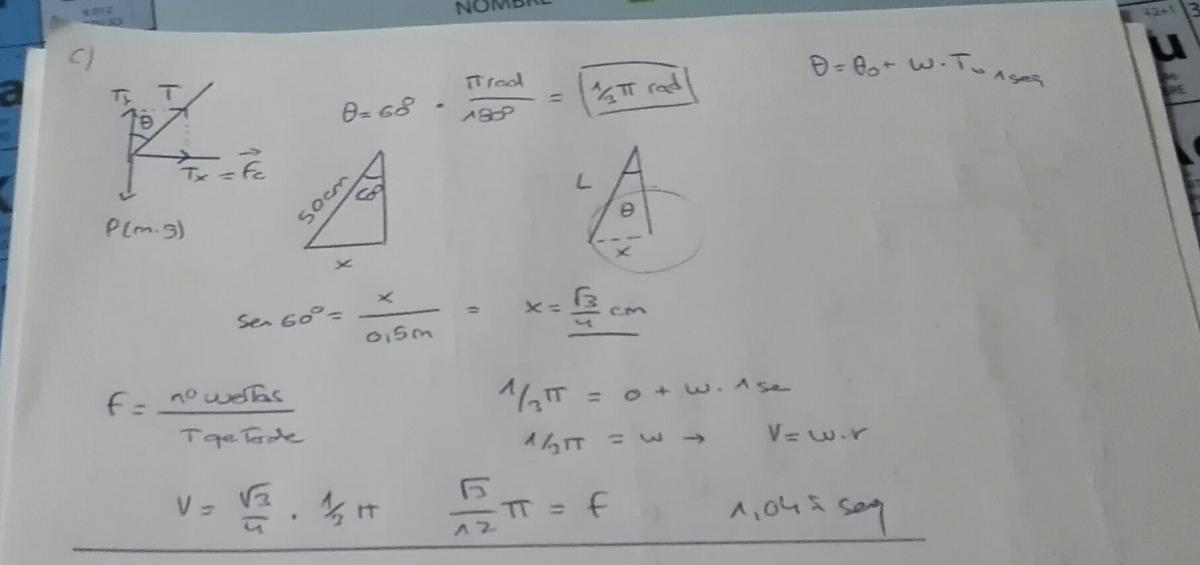 NOMBRE
9.012
42+1 3
u
a
c)
Ty T
θ
Tx = Fc
P(m.g)
θ = 60° · π rad / 180° = 1/3 π rad
θ = θ0 + w · T 1 seg
50cm
60
x
L
θ
x
sen 60° = x / 0,5m = x = √3/4 cm
f = nº vueltas / T qe tarda
1/3 π = 0 + w · 1 se
1/3 π = w → V = w · r
V = √3/4 · 1/3 π √3/12 π = f 1,04 seg